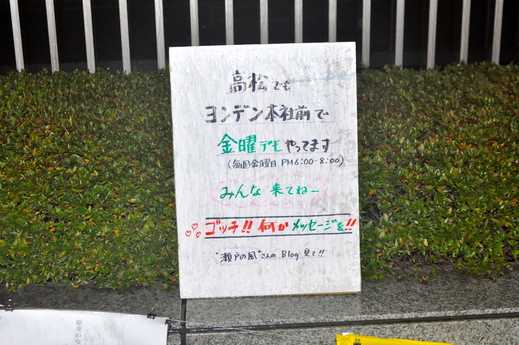 高松でも
ヨンデン本社前で
金曜デモやってます
(毎回金曜日 PM6:00-8:00)
みんな 来てねー
ゴッチ!! 何か メッセージを!!
"瀬戸の風"さんの Blog 見て!!